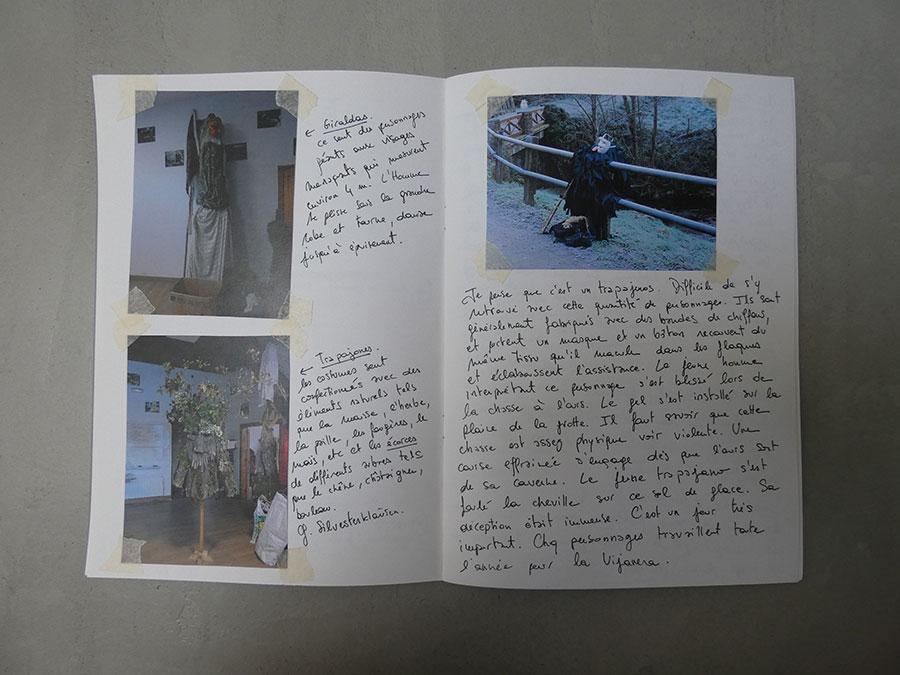 ← Giraldas.
ce sont des personnages
géants aux visages
menaçants qui mesurent
environ 4 m. L'Homme
se glisse sous la grande
robe et tourne, danse
jusqu'à épuisement.
← Trapajones.
les costumes sont
confectionnés avec des
éléments naturels tels
que la mousse, l'herbe,
la paille, les fougères, le
maïs, etc et les écorces
de différents arbres tels
que le chêne, châtaignier,
bouleau.
Je pense que c'est un trapajeros. Difficile de s'y
retrouver avec cette quantité de personnages. Ils sont
généralement fabriqués avec des bandes de chiffons,
et portent un masque et un bâton recouvert du
même tissu qu'il macule dans les flaques
et éclaboussent l'assistance. Le jeune homme
interprétant ce personnage s'est blessé lors de
la chasse à l'ours. Le gel s'est installé sur la
plaine de la grotte. Il faut savoir que cette
chasse est assez physique voir violente. Une
course effrainée s'engage dès que l'ours sort
de sa caverne. Le jeune trapajano s'est
foulé la cheville sur ce sol de glace. Sa
déception était immense. C'est un jour très
important. Chq personnages travaillent toute
l'année pour la Vijanera.